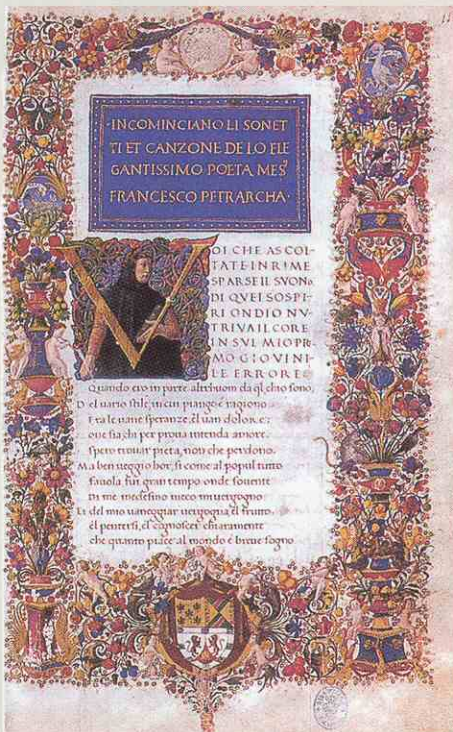 ·INCOMINCIANO LI SONET
TI ET CANZONE DE LO ELE
GANTISSIMO POETA MES
FRANCESCO PETRARCHA·
VOI CHE ASCOL
TATE IN RIME
SPARSE IL SVONO
DI QVEI SOSPI
RI ONDIO NV
TRIVA IL CORE
IN SVL MIO PRI
MO GIOVINI
LE ERRORE
Quando ero in parte altrhuom da ql chio sono,
D el uario stile, in cui piango & ragiono
Fra le uane speranze, el uan dolore;
oue sia, chi per proua intenda amore,
spero trouar pieta, non che perdono.
M a ben ueggio hor, si come al popul tutto
fauola fui gran tempo, onde souente
di me medesmo meco mi uergogno
Et del mio uaneggiar uergogna é l frutto,
el pentersi, el cognoscer chiaramente
che quanto piace al mondo é breue sogno